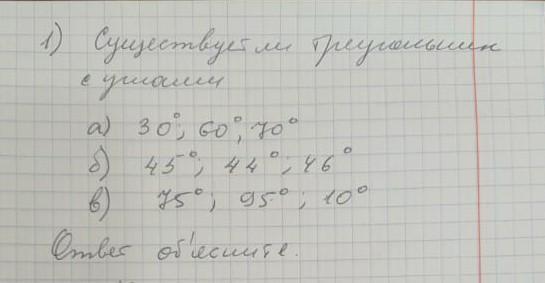 1) Существует ли треугольник
с углами
а) 30°; 60°; 70°
б) 45°; 44°; 46°
в) 75°; 95°; 10°
Ответ об'ясните.